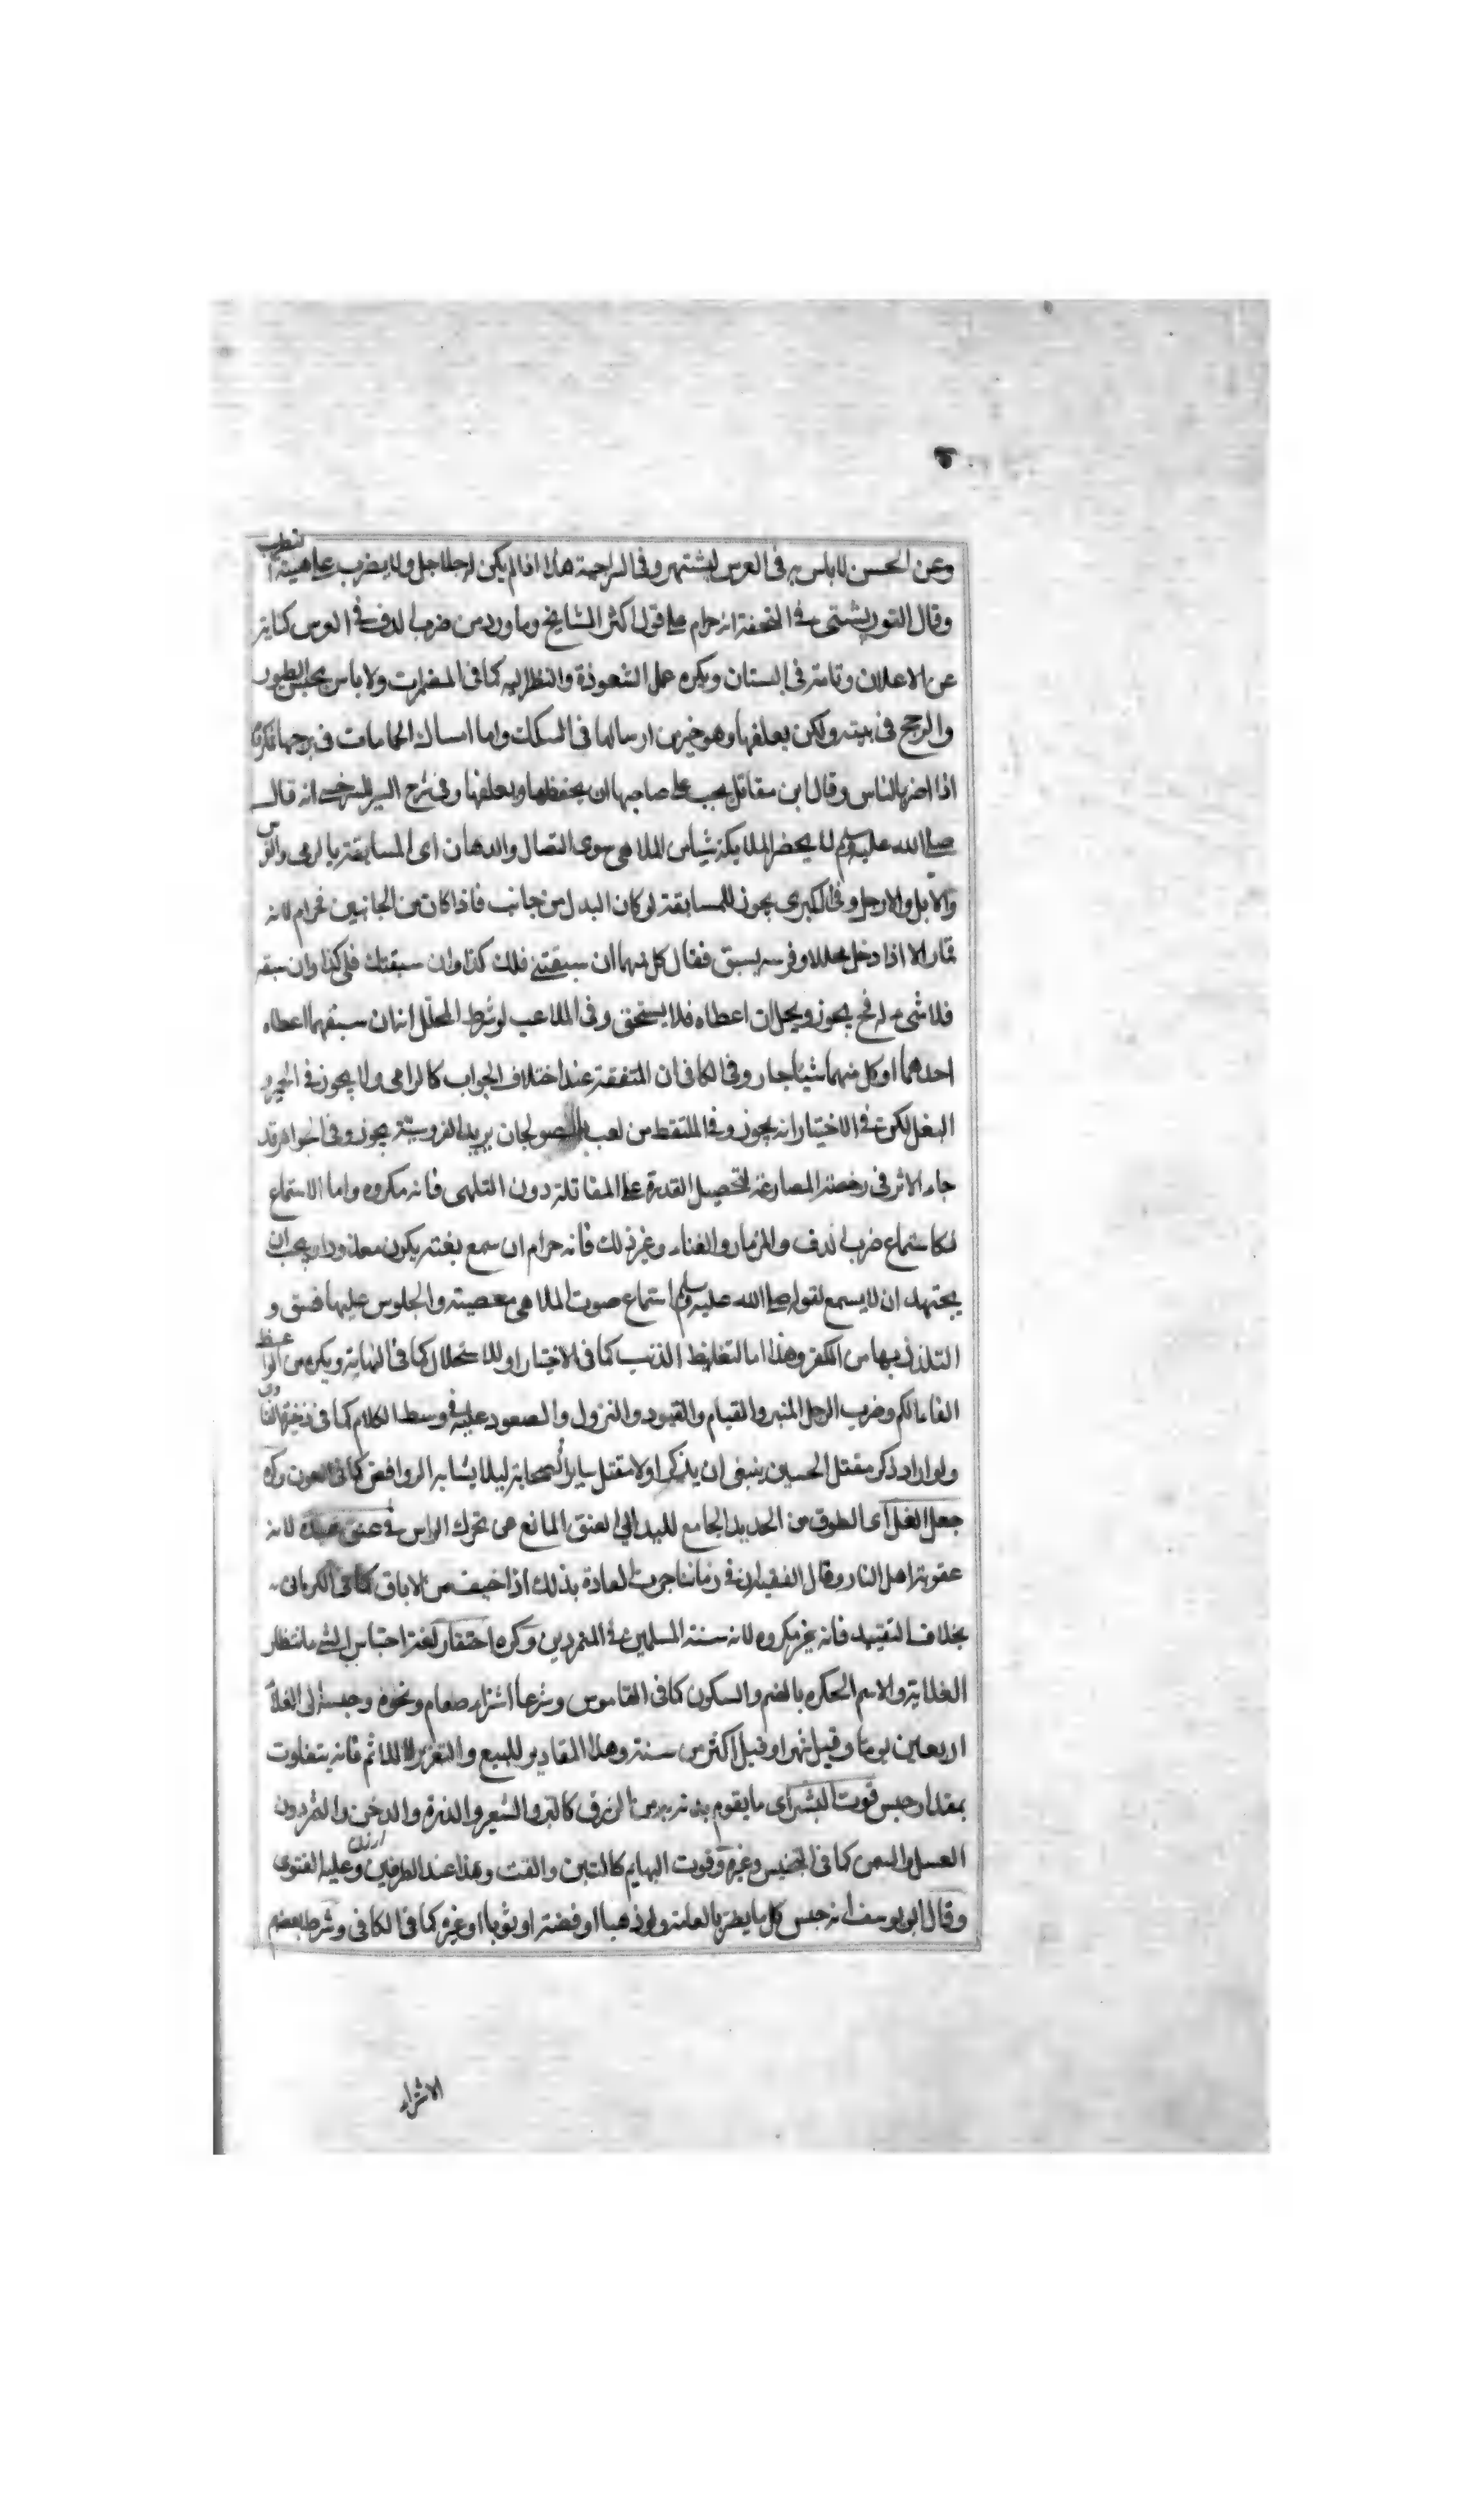 وعن الحسن لا باس به فى العرس ليشتهر وفى السراجية هذا اذا لم يكن له جلاجل ولا يضرب على هيئة التطرب
وقال التوربشتى فى التحفة انه حرام على قول اكثر المشايخ وما ورد من ضرب الدف فى العرس كناية
عن الاعلان وتمامه فى البستان ويكره عمل الشعوذة والنظر اليه كما فى المضمرات ولا باس بحبس الطيور
والدجج فى بيته ولكن يعلفها وهو خير من ارسالها فى السكك واما امساك الحمامات فى برجها فمكروه
اذا اضر بالناس وقال ابن مقاتل يجب على صاحبها ان يحفظها ويعلفها وفى شرح السير للسرخسى انه قال
صلى الله عليه وسلم لا يحضر الملايكة شيئا من الملاهى سوى النصال والرهان اى المسابقة بالرمى والفرس
والابل والارجل وفى الكبرى يجوز المسابقة لو كان البدل من جانب فاذا كان من الجانبين فحرام لانه
قمار الا اذا دخل محللا وفرسه يسبق فقال كل منهما ان سبقتنى فلك كذا وان سبقتك فلى كذا وان سبقه
فلا شىء له فح يجوز ويحل ان اعطاه فلا يستحق وفى الملاعب لو شرط المحلل انه ان سبقهما اعطاه
احدهما او كل منهما شيئا جاز وفى الكافى ان المتفقة عند اختلاف الجواب كالرامى ولا يجوز فى الحمير
البغل لكن فى الاختيار انه يجوز وفى الملتقط من لعب بالصولجان يريد الفروسية يجوز وفى الجواهر قد
جاء الاثر فى رخصة المصارعة لتحصيل القدرة على المقاتلة دون التلهى فانه مكروه واما الاستماع
فكاستماع ضرب الدف والمزمار والغناء وغير ذلك فانه حرام ان سمع بغتة يكون معذورا ويجب ان
يجتهد ان لا يسمع لقوله صلى الله عليه وسلم استماع صوت الملاهى معصية والجلوس عليها فسق و
التلذذ بها من الكفر وهذا اما لتغليظ الذنب كما فى الاختيار او للاستحلال كما فى النهاية ويكره من الواعظ
القاء الكم وضرب الرجل المنبر والقيام والقعود والنزول والصعود عليه فى وسط الكلام كما فى ذخيرة الفتاوى
ولو اراد ذكر مقتل الحسين ينبغى ان يذكر اولا مقتل ساير الصحابة ليلا يشابه الروافض كما فى العون وكره
جعل الغل اى الطوق من الحديد الجامع لليد الى العنق المانع عن تحرك الراس فى عنق عبده لانه
عقوبة اهل النار وقال الفقيه ان فى زماننا جرت العادة بذلك اذا خيف من الاباق كما فى الكرمانى
بخلاف التقييد فانه غير مكروه لانه سنة المسلمين فى المتمردين وكره احتكار لغة احتباس الشى بانتظار
الغلاية والاسم الحكره بالضم والسكون كما فى القاموس وشرعا اشتراء طعام ونحوه وحبسه الى الغلاء
اربعين يوما وقيل شهرا وقيل اكثر من سنة وهذا المقادير للبيع والتعزير لا للاثم فانه يتفاوت
بمقدار حبس قوت البشر اى ما يقوم بدنه به من الرزق كالبر والشعير والذرة والدخن ارزن والتمر دون
العسل والسمن كما فى التجنيس وغيره وقوت البهايم كالتبن والقت وهذا عند الطرفين وعليه الفتوى
وقال ابو يوسف انه حبس كل ما يضر بالعامة ولو ذهبا او فضة او ثوبا او غيره كما فى الكافى وشرط بعضهم
الاشتراء